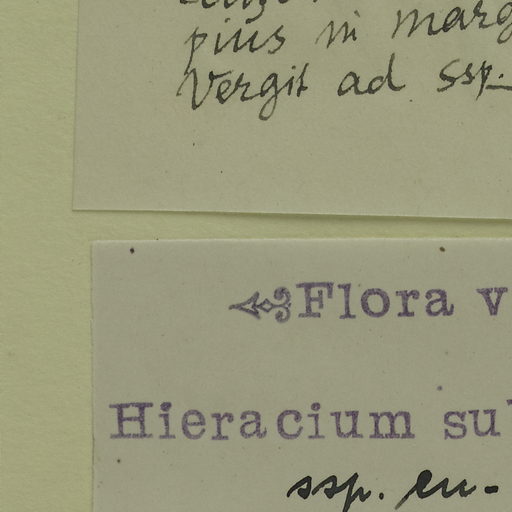 pius in marg
Vergit ad ssp.
Flora v
Hieracium su
ssp. eu-